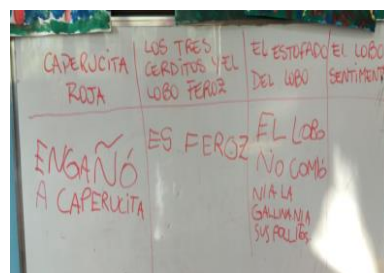 CAPERUCITA
ROJA
LOS TRES
CERDITOS Y EL
LOBO FEROZ
EL ESTOFADO
DEL LOBO
EL LOBO
ENGAÑÓ
A CAPERUCITA
ES FEROZ
EL LOBO
NO COMIÓ
NI A LA
GALLINA NI A
SUS POLLITOS